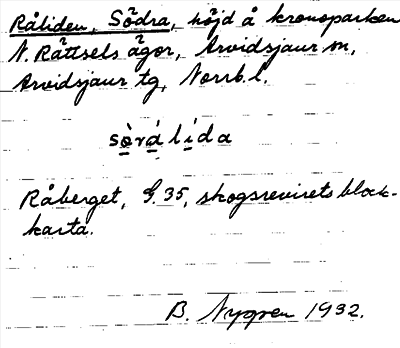 Råliden, Södra, höjd å kronoparken
N. Rättsels ägor, Arvidsjaur sn,
Arvidsjaur tg, Norrb. l.
sòrálida
Råberget, G. 35, skogsrevirets block-
karta.
B. Nygren 1932.